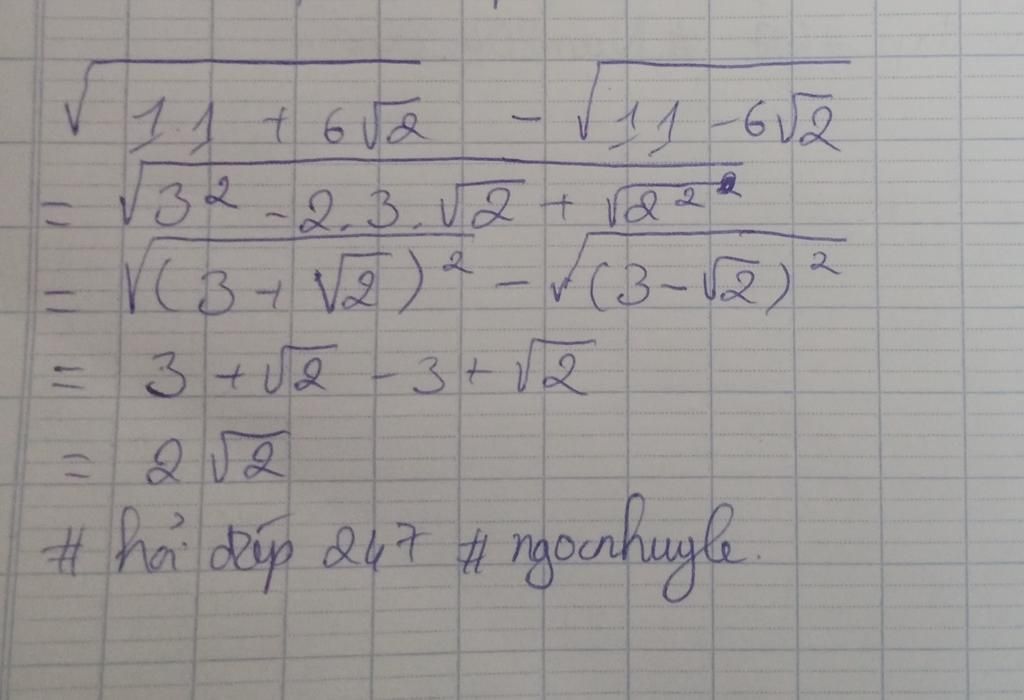 √(11 + 6√2) - √(11 - 6√2)
= √(3² - 2.3.√2 + √2²²)
= √((3 + √2)²) - √((3 - √2)²)
= 3 + √2 - 3 + √2
= 2√2
# hỏi đáp 247 # ngocnhuyle.